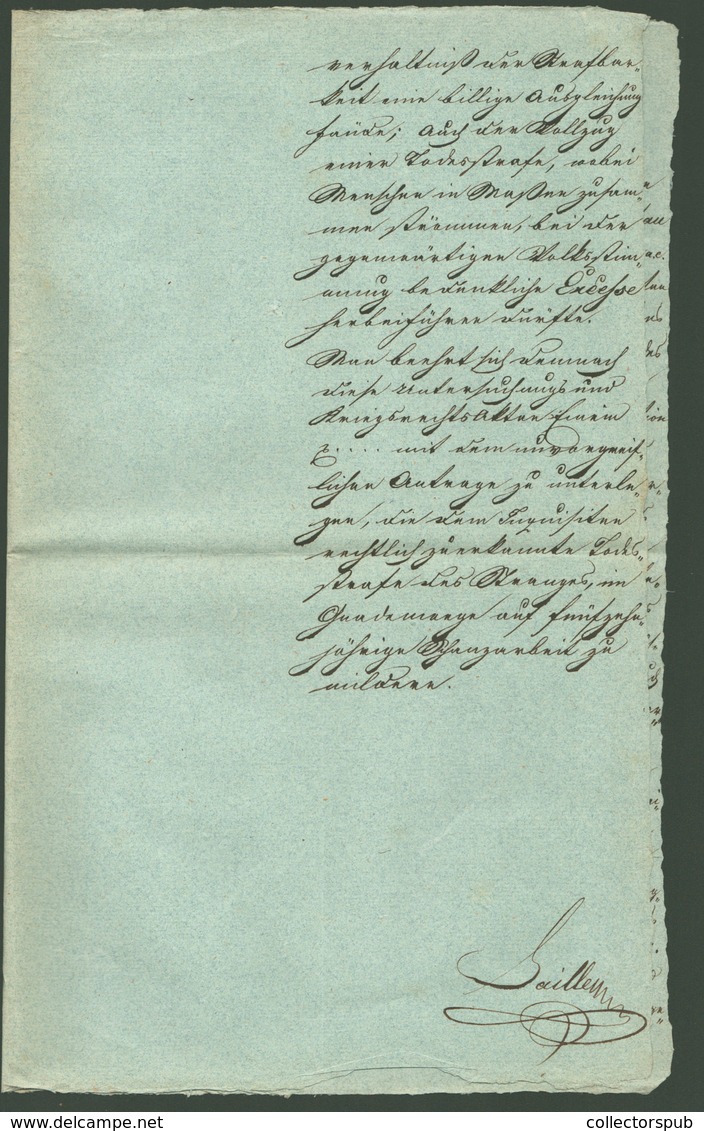 verhältniß der Strafbar„
keit eine billige Ausgleichung
fände; Auch der Vollzug
einer Todesstrafe, wobei
Menschen in Massen zusam„
men strömmen, bei der
gegenwärtigen Volksstim„
mung bedenkliche Excesse
herbeiführen dürfte.
Man beehrt sich demnach
diese Untersuchungs und
Kriegsrechts Akten Einem
mit dem unvorgreif„
lichen Antrage zu unterle„
gen, die dem Inquisiten
rechtlich zuerkannte Todes„
strafe des Stranges, im
Gnadenwege auf fünfzehn„
jährige Schanzarbeit zu
mildern.
www.delcampe.net
collectorspub